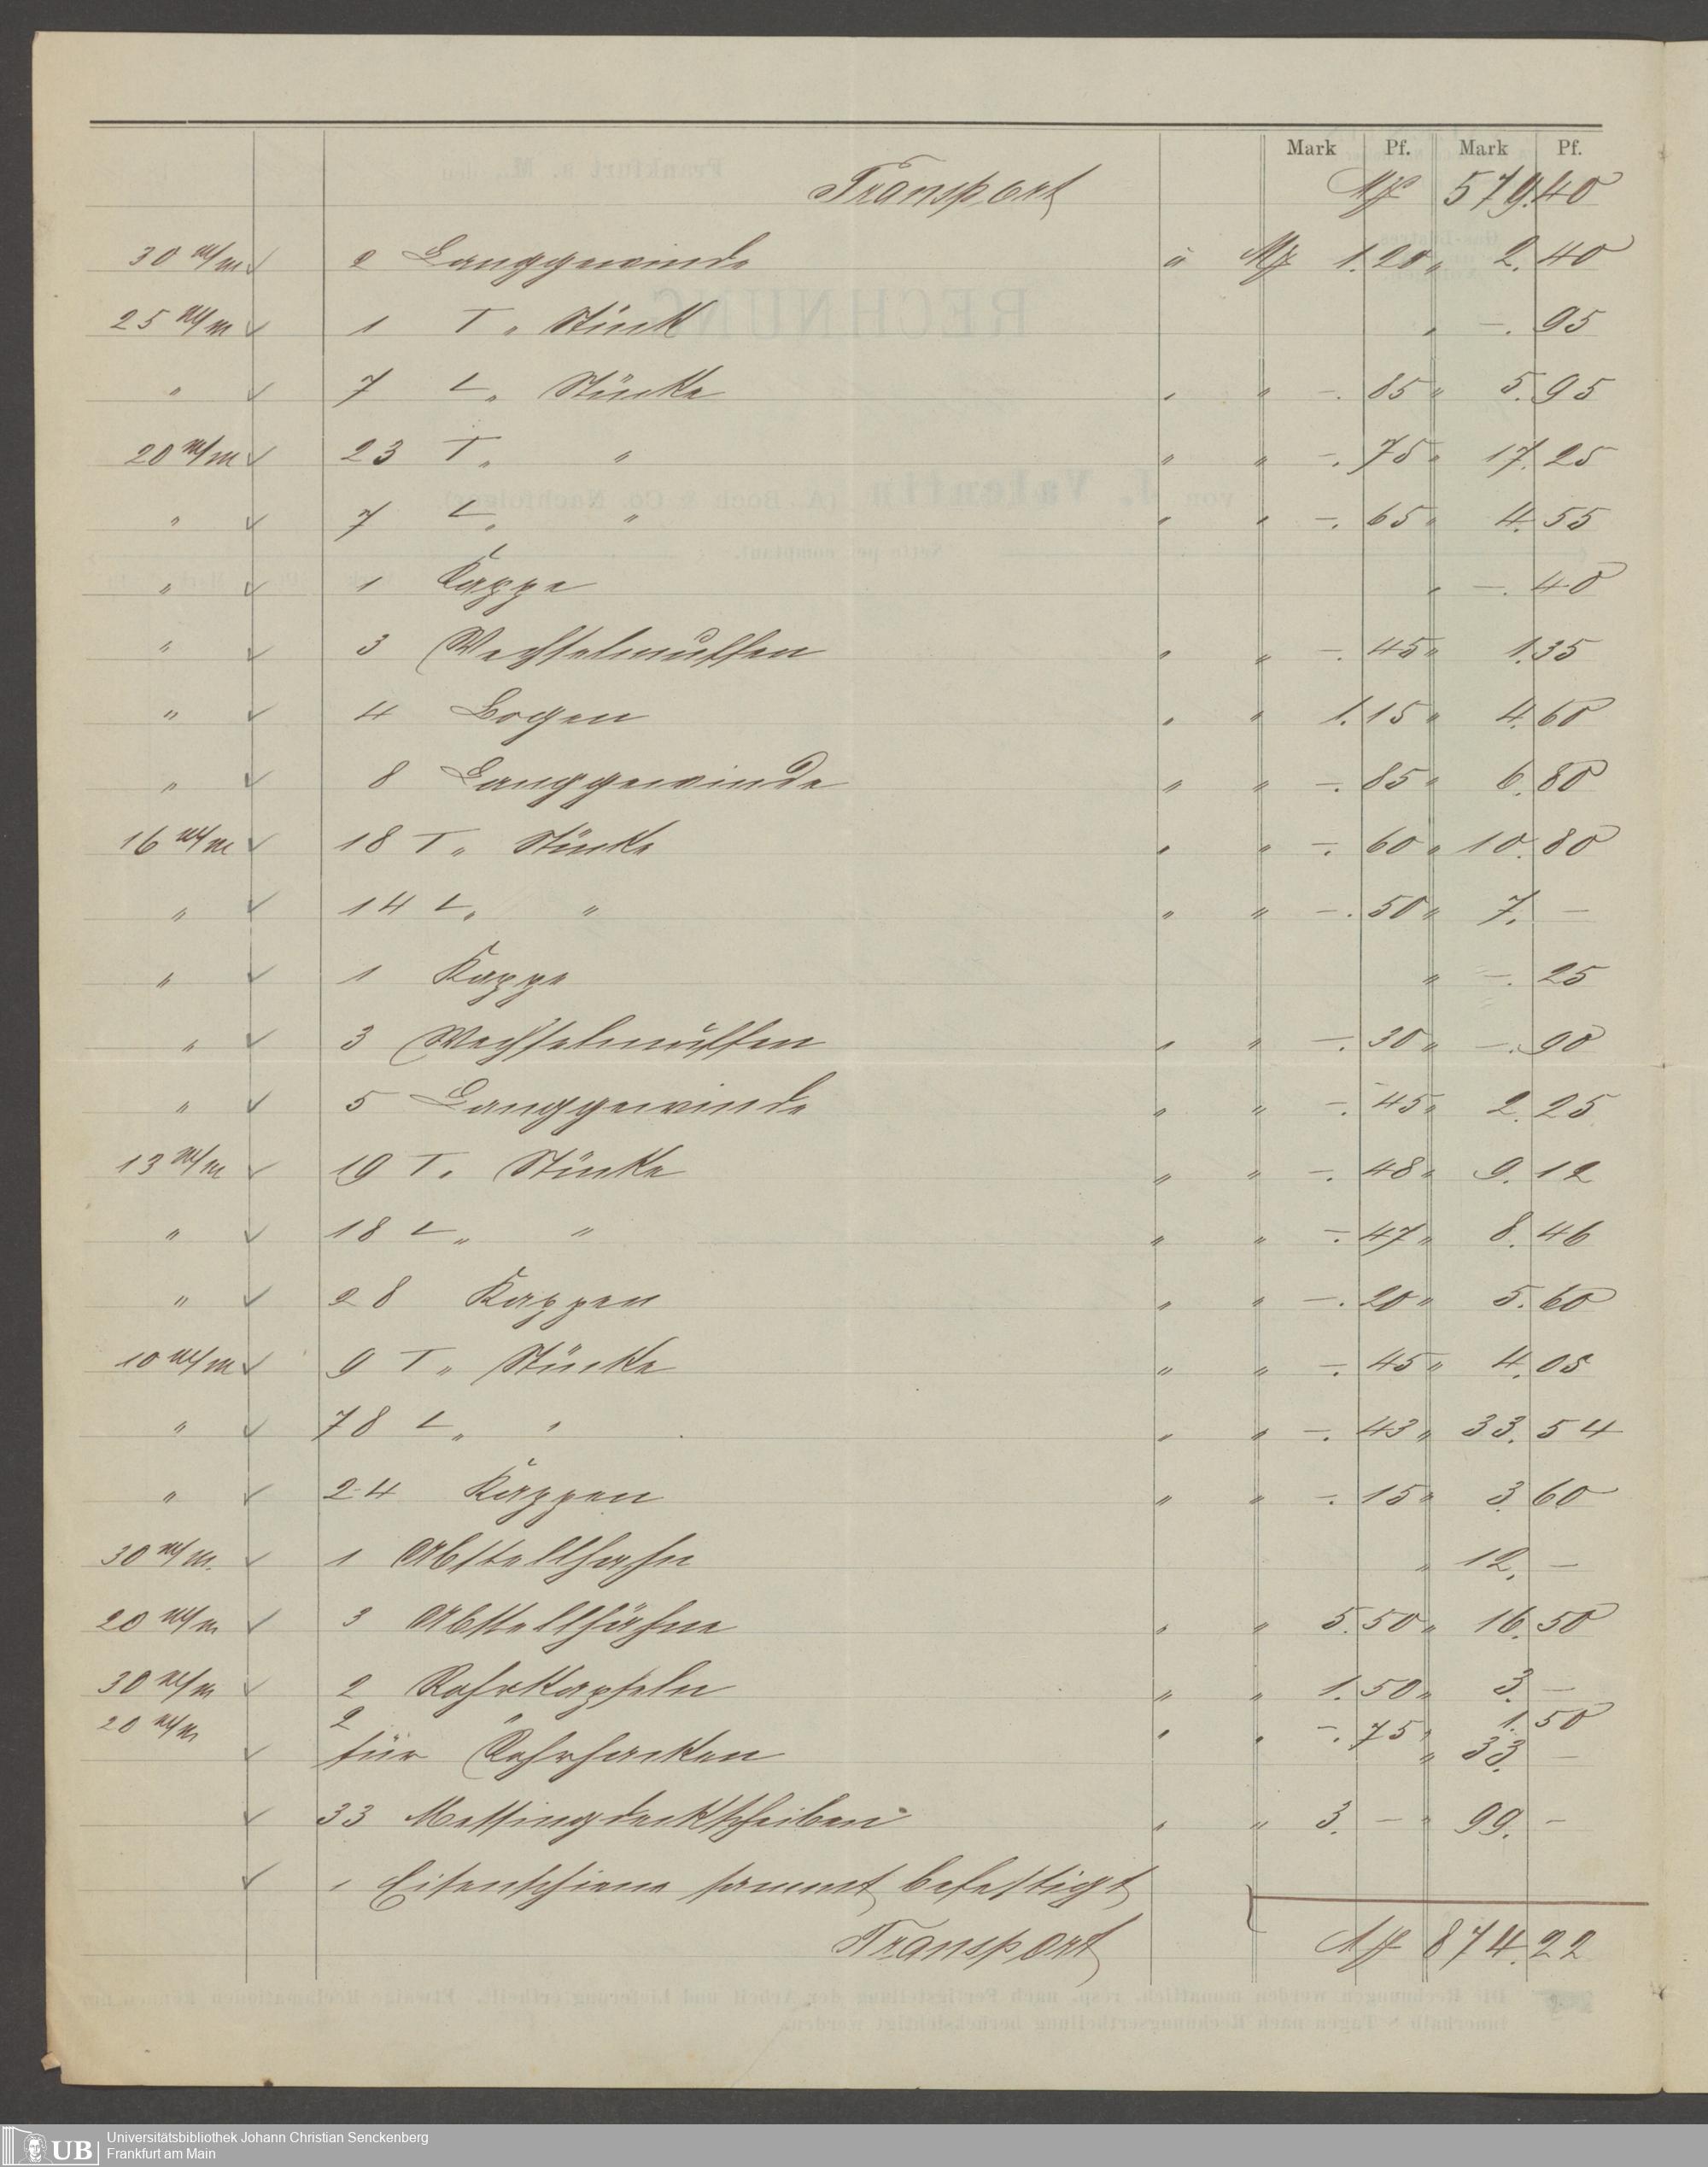 Mark Pf. Mark Pf.
Transport M 579.40
30 m/m 2 Langgewinde à M 1.20 " 2.40
25 m/m 1 T " Stück " —. 95
" 7 L " Stücke " " —. 85 " 5.95
20 m/m 23 T " " " " —. 75 " 17.25
" 7 L " " " " —. 65 " 4.55
" 1 Kappe " —. 40
" 3 Wechselmuffen " " —. 45 " 1.35
" 4 Bogen " " 1.15 " 4.60
" 8 Langgewinde " " —. 85 " 6.80
16 m/m 18 T " Stücke " " —. 60 " 10.80
" 14 L " " " " —. 50 " 7. —
" 1 Kappe " —. 25
" 3 Wechselmuffen " " —. 30 " —. 90
" 5 Langgewinde " " —. 45 " 2.25
13 m/m 19 T " Stücke " " —. 48 " 9.12
" 18 L " " " " —. 47 " 8.46
" 28 Kappen " " —. 20 " 5.60
10 m/m 9 T " Stücke " " —. 45 " 4.05
" 78 L " " " " —. 43 " 33.54
" 24 Kappen " " —. 15 " 3.60
30 m/m. 1 Abstellhahn " 12. —
20 m/m 3 Abstellhähne " " 5.50 " 16.50
30 m/m 2 Rohrkapseln " " 1.50 " 3. —
20 m/m 2 " " " —. 75 " 1.50
für Rohrhacken " 33. —
33 Messingdeckscheiben " " 3. — " 99. —
1 Eisenschiene sammt befestigt
Transport M 874.22
Universitätsbibliothek Johann Christian Senckenberg
Frankfurt am Main
UB